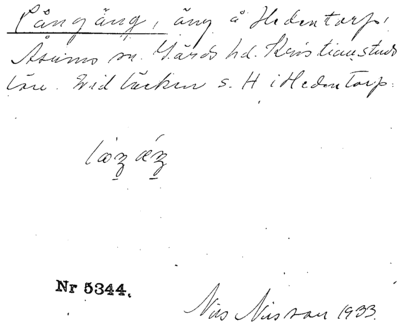 Långäng, äng å Hedentorp,
Åsums sn. Gärds hd. Kristianstads
län. Vid bäcken s. H i Hedentorp.
Nr 5344.
Nils Nilsson 1933.